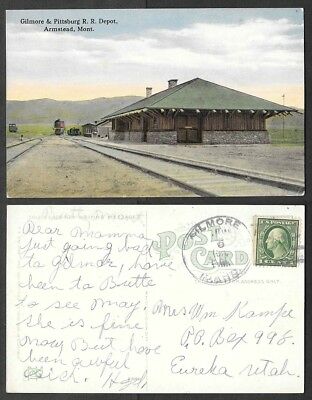 Gilmore & Pittsburg R. R. Depot,
Armstead, Mont.
POST CARD
GILMORE
IDAHO
U.S. POSTAGE
ADDRESS ONLY.
Dear Mamma
just going back
to Gilmor, have
been to Butte
to see May.
She is fine
now But have
been awful
sick.
Mrs Wm Kampe
P.O. Box 998.
Eureka Utah.